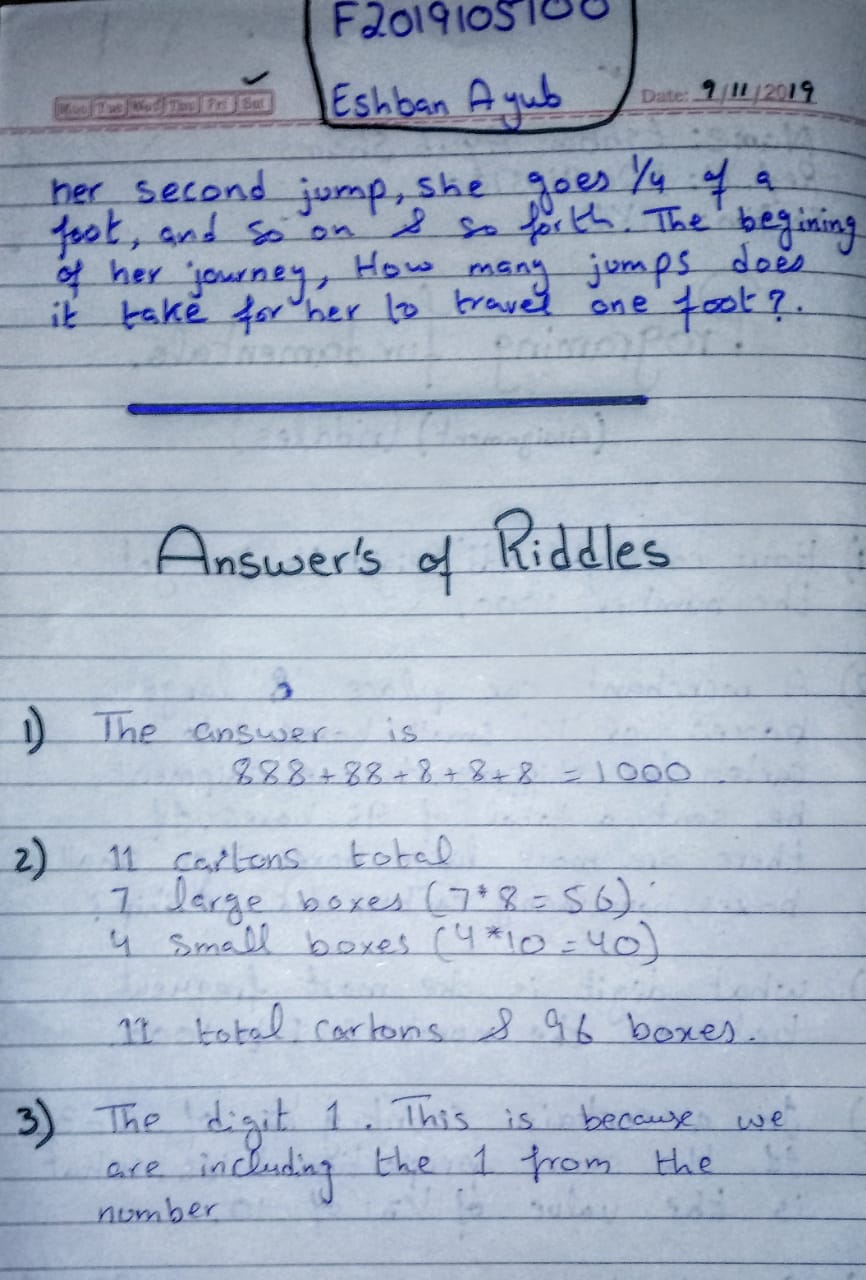 F2019105100
Eshban Ayub
Mon Tue Wed Thu Fri Sat
Date: 9/11/2019
her second jump, she goes 1/4 of a
foot, and so on & so forth. The begining
of her journey, How many jumps does
it take for her to travel one foot?.
Answer's of Riddles
1) The answer is
888+88+8+8+8 = 1000.
2) 11 cartons total
7 large boxes (7*8=56)
4 small boxes (4*10=40)
11 total cartons & 96 boxes.
3) The digit 1. This is because we
are including the 1 from the
number